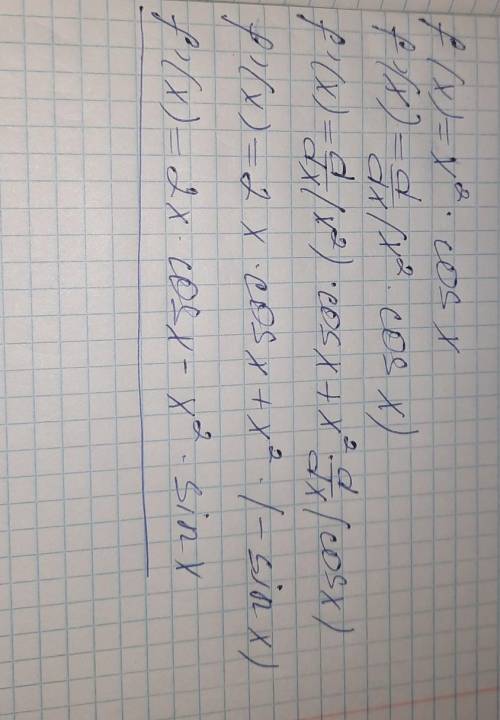 f(x) = x² · cos x
f'(x) = d/dx (x² · cos x)
f'(x) = d/dx (x²) · cos x + x² · d/dx (cos x)
f'(x) = 2x · cos x + x² · (− sin x)
f'(x) = 2x · cos x − x² · sin x